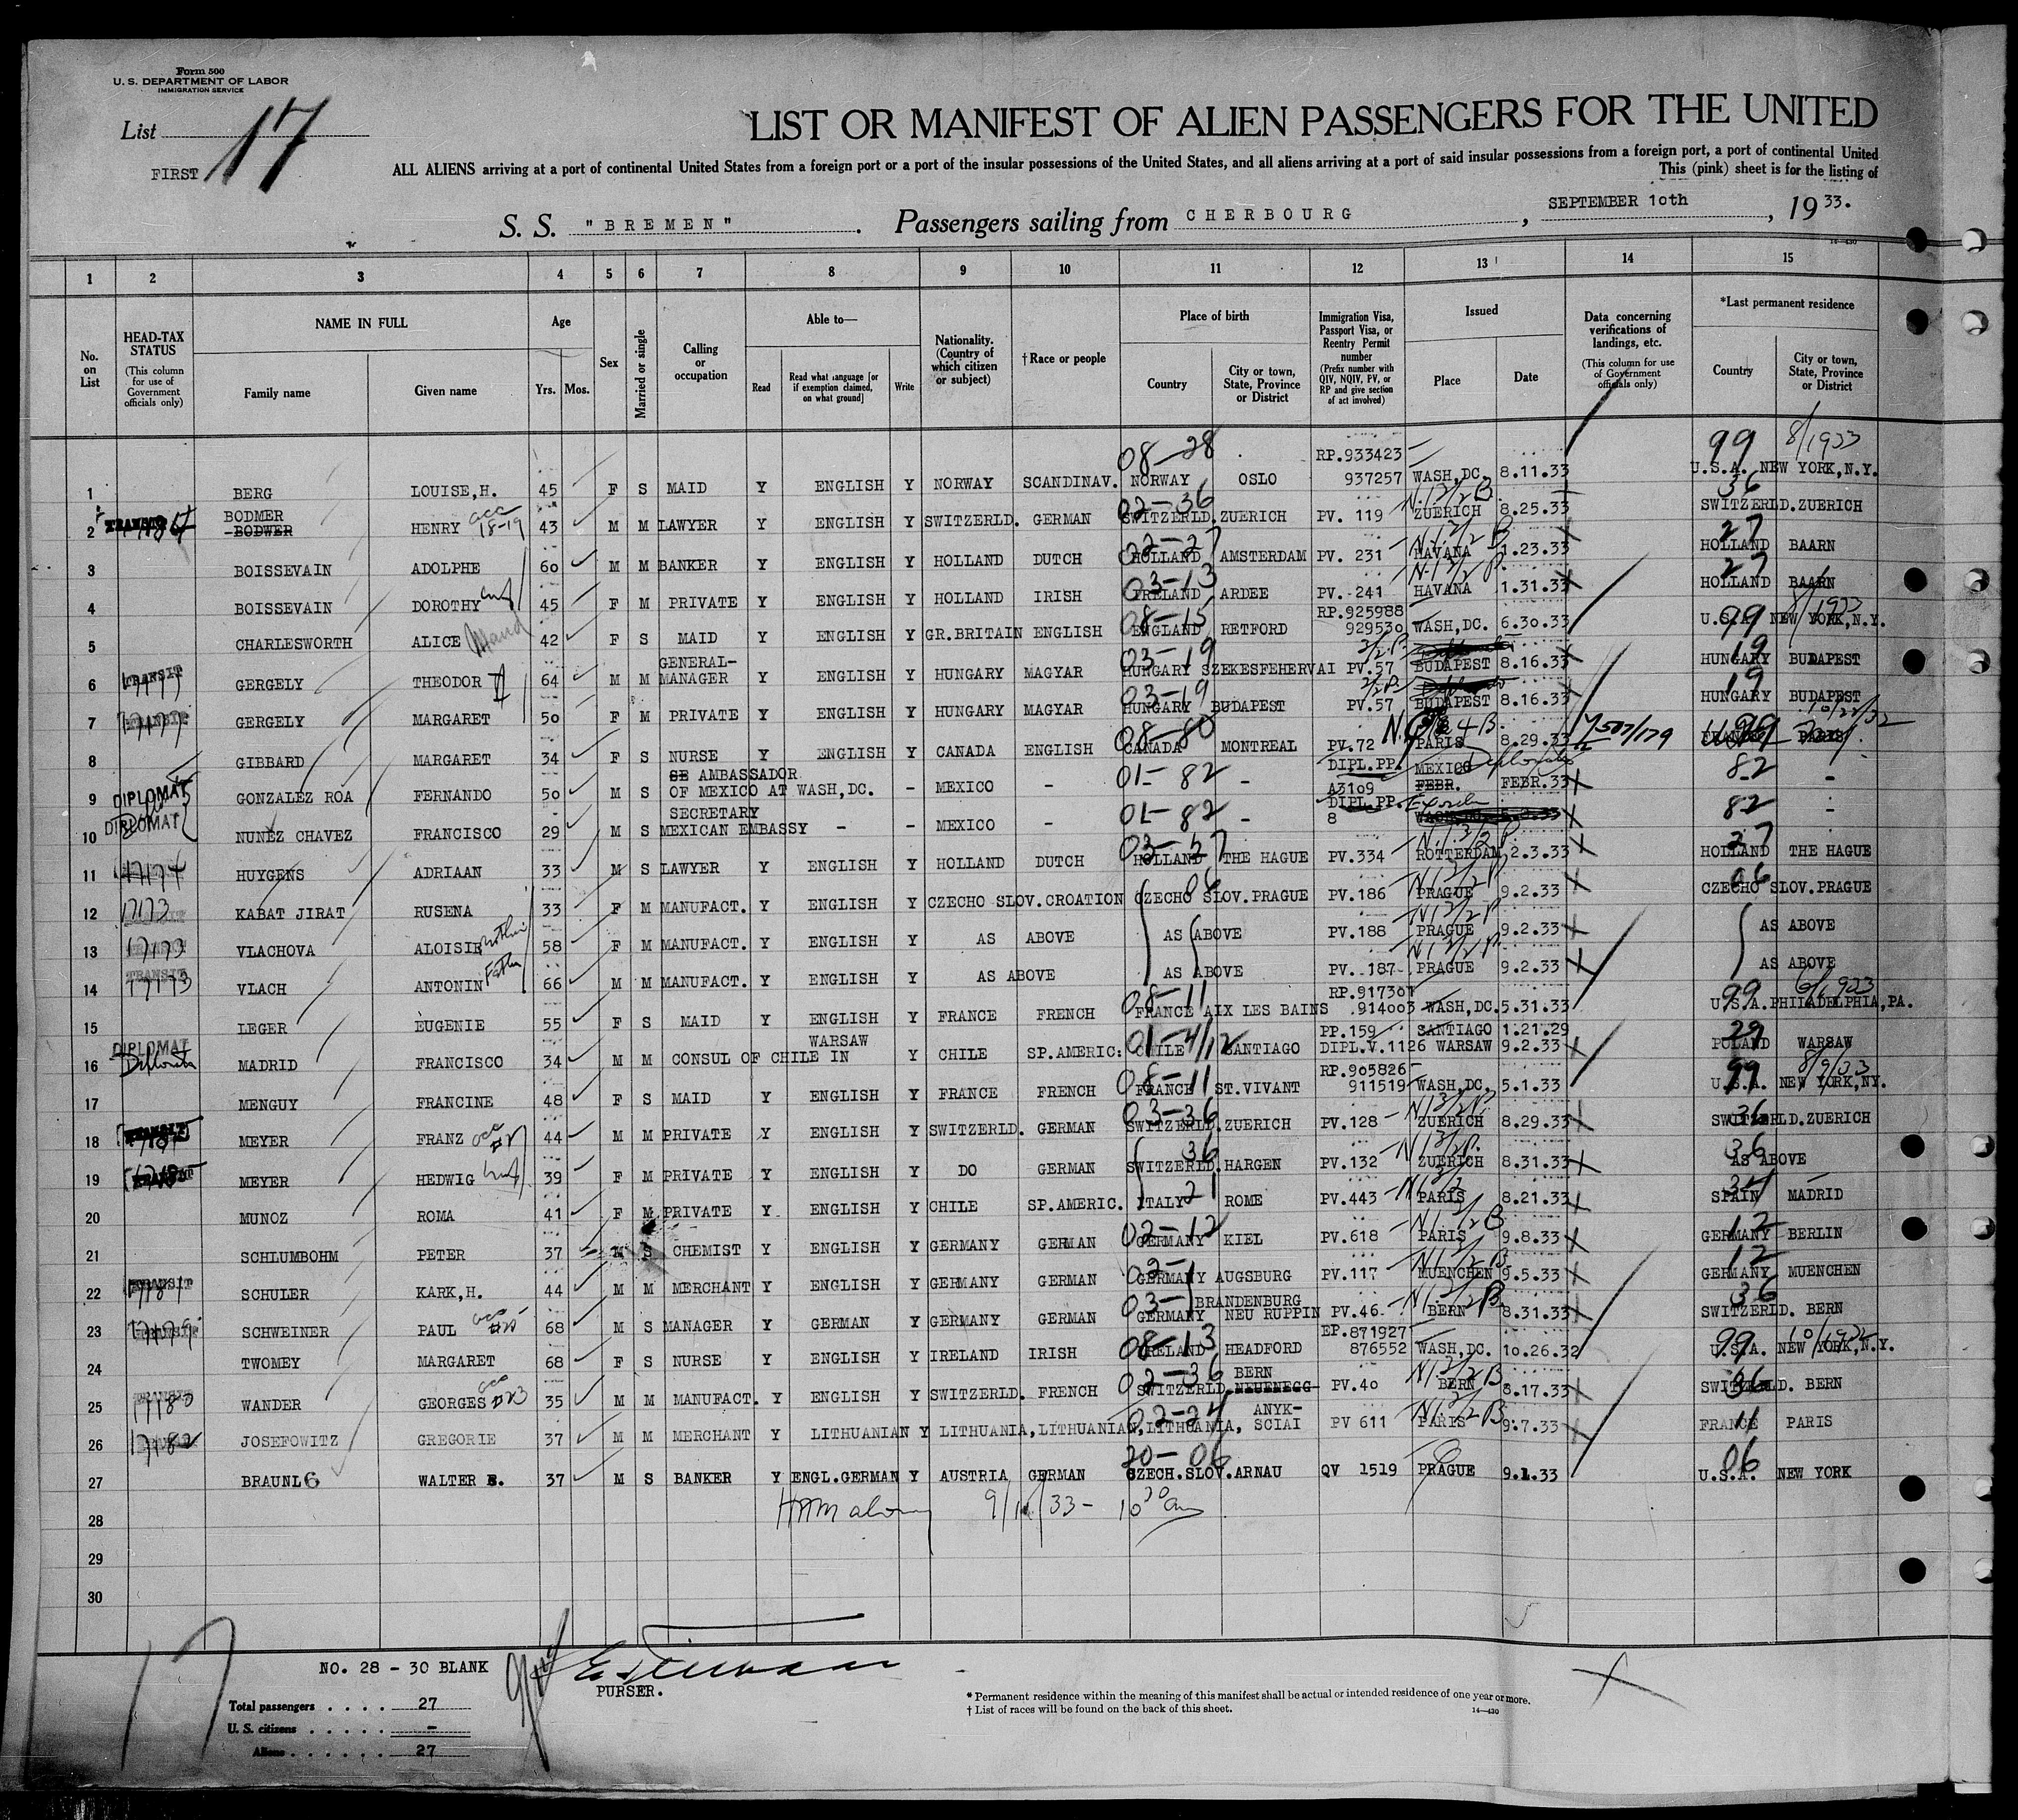 Form 500
U. S. DEPARTMENT OF LABOR
IMMIGRATION SERVICE
List 17
FIRST
LIST OR MANIFEST OF ALIEN PASSENGERS FOR THE UNITED
ALL ALIENS arriving at a port of continental United States from a foreign port or a port of the insular possessions of the United States, and all aliens arriving at a port of said insular possessions from a foreign port, a port of continental United
This (pink) sheet is for the listing of
S. S. "BREMEN". Passengers sailing from CHERBOURG, SEPTEMBER 10th, 1933.
14—430
1 2 3 4 5 6 7 8 9 10 11 12 13 14 15
No. on List
HEAD-TAX STATUS (This column for use of Government officials only)
NAME IN FULL Family name Given name
Age Yrs. Mos.
Sex
Married or single
Calling or occupation
Able to— Read Read what language [or if exemption claimed, on what ground] Write
Nationality. (Country of which citizen or subject)
†Race or people
Place of birth Country City or town, State, Province or District
Immigration Visa, Passport Visa, or Reentry Permit number (Prefix number with QIV, NQIV, PV, or RP and give section of act involved)
Issued Place Date
Data concerning verifications of landings, etc. (This column for use of Government officials only)
*Last permanent residence Country City or town, State, Province or District
08-28 RP.933423 99 8/1933
1 BERG LOUISE,H. 45 F S MAID Y ENGLISH Y NORWAY SCANDINAV. NORWAY OSLO 937257 WASH,DC. 8.11.33 U.S.A. NEW YORK,N.Y.
BODMER 02-36 36
2 TRANSIT BODWER HENRY acc 18-19 43 M M LAWYER Y ENGLISH Y SWITZERLD. GERMAN SWITZERLD. ZUERICH PV. 119 ZUERICH 8.25.33 SWITZERLD. ZUERICH
02-27 27
3 BOISSEVAIN ADOLPHE 60 M M BANKER Y ENGLISH Y HOLLAND DUTCH HOLLAND AMSTERDAM PV. 231 HAVANA 1.23.33 HOLLAND BAARN
03-13 27
4 BOISSEVAIN DOROTHY wf 45 F M PRIVATE Y ENGLISH Y HOLLAND IRISH IRELAND ARDEE PV. 241 HAVANA 1.31.33 HOLLAND BAARN
08-15 RP.925988 99 8/1933
5 CHARLESWORTH ALICE Maid 42 F S MAID Y ENGLISH Y GR.BRITAIN ENGLISH ENGLAND RETFORD 929530 WASH,DC. 6.30.33 U.S.A. NEW YORK,N.Y.
GENERAL- 03-19 19
6 TRANSIT GERGELY THEODOR 64 M M MANAGER Y ENGLISH Y HUNGARY MAGYAR HUNGARY SZEKESFEHERVAI PV.57 BUDAPEST 8.16.33 HUNGARY BUDAPEST
03-19 19
7 TRANSIT GERGELY MARGARET 50 F M PRIVATE Y ENGLISH Y HUNGARY MAGYAR HUNGARY BUDAPEST PV.57 BUDAPEST 8.16.33 HUNGARY BUDAPEST
08-80 10/22/32
8 GIBBARD MARGARET 34 F S NURSE Y ENGLISH Y CANADA ENGLISH CANADA MONTREAL PV.72 PARIS 8.29.33 FRANCE PARIS
SE AMBASSADOR 01-82 DIPL.PP. MEXICO 82
9 DIPLOMAT GONZALEZ ROA FERNANDO 50 M S OF MEXICO AT WASH,DC. - MEXICO - - A3109 FEBR. FEBR.33 -
SECRETARY 01-82 DIPL.PP. 82
10 DIPLOMAT NUNEZ CHAVEZ FRANCISCO 29 M S MEXICAN EMBASSY - - MEXICO - - 8 -
03-27 27
11 17174 HUYGENS ADRIAAN 33 M S LAWYER Y ENGLISH Y HOLLAND DUTCH HOLLAND THE HAGUE PV.334 ROTTERDAM 2.3.33 HOLLAND THE HAGUE
06 06
12 17173 KABAT JIRAT RUSENA 33 F M MANUFACT. Y ENGLISH Y CZECHO SLOV. CROATION CZECHO SLOV. PRAGUE PV.186 PRAGUE 9.2.33 CZECHO SLOV. PRAGUE
13 17173 VLACHOVA ALOISIE mother 58 F M MANUFACT. Y ENGLISH Y AS ABOVE AS ABOVE PV.188 PRAGUE 9.2.33 AS ABOVE
14 TRANSIT 17173 VLACH ANTONIN Father 66 M M MANUFACT. Y ENGLISH Y AS ABOVE AS ABOVE PV..187 PRAGUE 9.2.33 AS ABOVE
08-11 RP.917307 99 6/1933
15 LEGER EUGENIE 55 F S MAID Y ENGLISH Y FRANCE FRENCH FRANCE AIX LES BAINS .914003 WASH,DC. 5.31.33 U.S.A. PHILADELPHIA,PA.
WARSAW 01-4/12 PP.159 SANTIAGO 1.21.29 29
16 DIPLOMAT MADRID FRANCISCO 34 M M CONSUL OF CHILE IN Y CHILE SP.AMERIC: CHILE SANTIAGO DIPL.V.1126 WARSAW 9.2.33 POLAND WARSAW
08-11 RP.905826 99 8/9/33
17 MENGUY FRANCINE 48 F S MAID Y ENGLISH Y FRANCE FRENCH FRANCE ST.VIVANT 911519 WASH,DC. 5.1.33 U.S.A. NEW YORK,NY.
03-36 36
18 TRANSIT MEYER FRANZ acc #2 44 M M PRIVATE Y ENGLISH Y SWITZERLD. GERMAN SWITZERLD. ZUERICH PV.128 ZUERICH 8.29.33 SWITZERLD. ZUERICH
36 36
19 TRANSIT MEYER HEDWIG wf 39 F M PRIVATE Y ENGLISH Y DO GERMAN SWITZERLD. HARGEN PV.132 ZUERICH 8.31.33 AS ABOVE
21 34
20 MUNOZ ROMA 41 F M PRIVATE Y ENGLISH Y CHILE SP.AMERIC. ITALY ROME PV.443 PARIS 8.21.33 SPAIN MADRID
02-12 12
21 SCHLUMBOHM PETER 37 M S CHEMIST Y ENGLISH Y GERMANY GERMAN GERMANY KIEL PV.618 PARIS 9.8.33 GERMANY BERLIN
12
22 TRANSIT SCHULER KARK,H. 44 M M MERCHANT Y ENGLISH Y GERMANY GERMAN GERMANY AUGSBURG PV.117 MUENCHEN 9.5.33 GERMANY MUENCHEN
BRANDENBURG 36
23 17179 SCHWEINER PAUL acc #25 68 M S MANAGER Y GERMAN Y GERMANY GERMAN GERMANY NEU RUPPIN PV.46. BERN 8.31.33 SWITZERLD. BERN
08-13 EP.871927 99 10/1932
24 TWOMEY MARGARET 68 F S NURSE Y ENGLISH Y IRELAND IRISH IRELAND HEADFORD 876552 WASH,DC. 10.26.32 U.S.A. NEW YORK,N.Y.
02-36 BERN 36
25 TRANSIT 17180 WANDER GEORGES acc #23 35 M M MANUFACT. Y ENGLISH Y SWITZERLD. FRENCH SWITZERLD. NEUENEGG PV.40 BERN 8.17.33 SWITZERLD. BERN
02-24 ANYK- 11
26 17182 JOSEFOWITZ GREGORIE 37 M M MERCHANT Y LITHUANIAN Y LITHUANIA, LITHUANIAN, LITHUANIA, SCIAI PV 611 PARIS 9.7.33 FRANCE PARIS
20-06 06
27 BRAUNLG WALTER B. 37 M S BANKER Y ENGL.GERMAN Y AUSTRIA GERMAN CZECH.SLOV. ARNAU QV 1519 PRAGUE 9.1.33 U.S.A. NEW YORK
28
29
30
17
NO. 28 - 30 BLANK
PURSER.
Total passengers . . . . 27
U. S. citizens . . . . . -
Aliens . . . . . . 27
* Permanent residence within the meaning of this manifest shall be actual or intended residence of one year or more.
† List of races will be found on the back of this sheet.
14—430